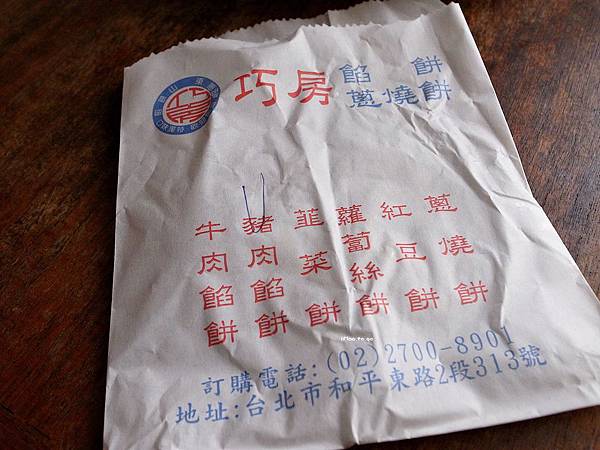 巧房 餡餅
蔥燒餅
蔥燒餅
紅豆餅
蘿蔔絲餅
韮菜餅
豬肉餡餅
牛肉餡餅
訂購電話:(02)2700-8901
地址:台北市和平東路2段313號